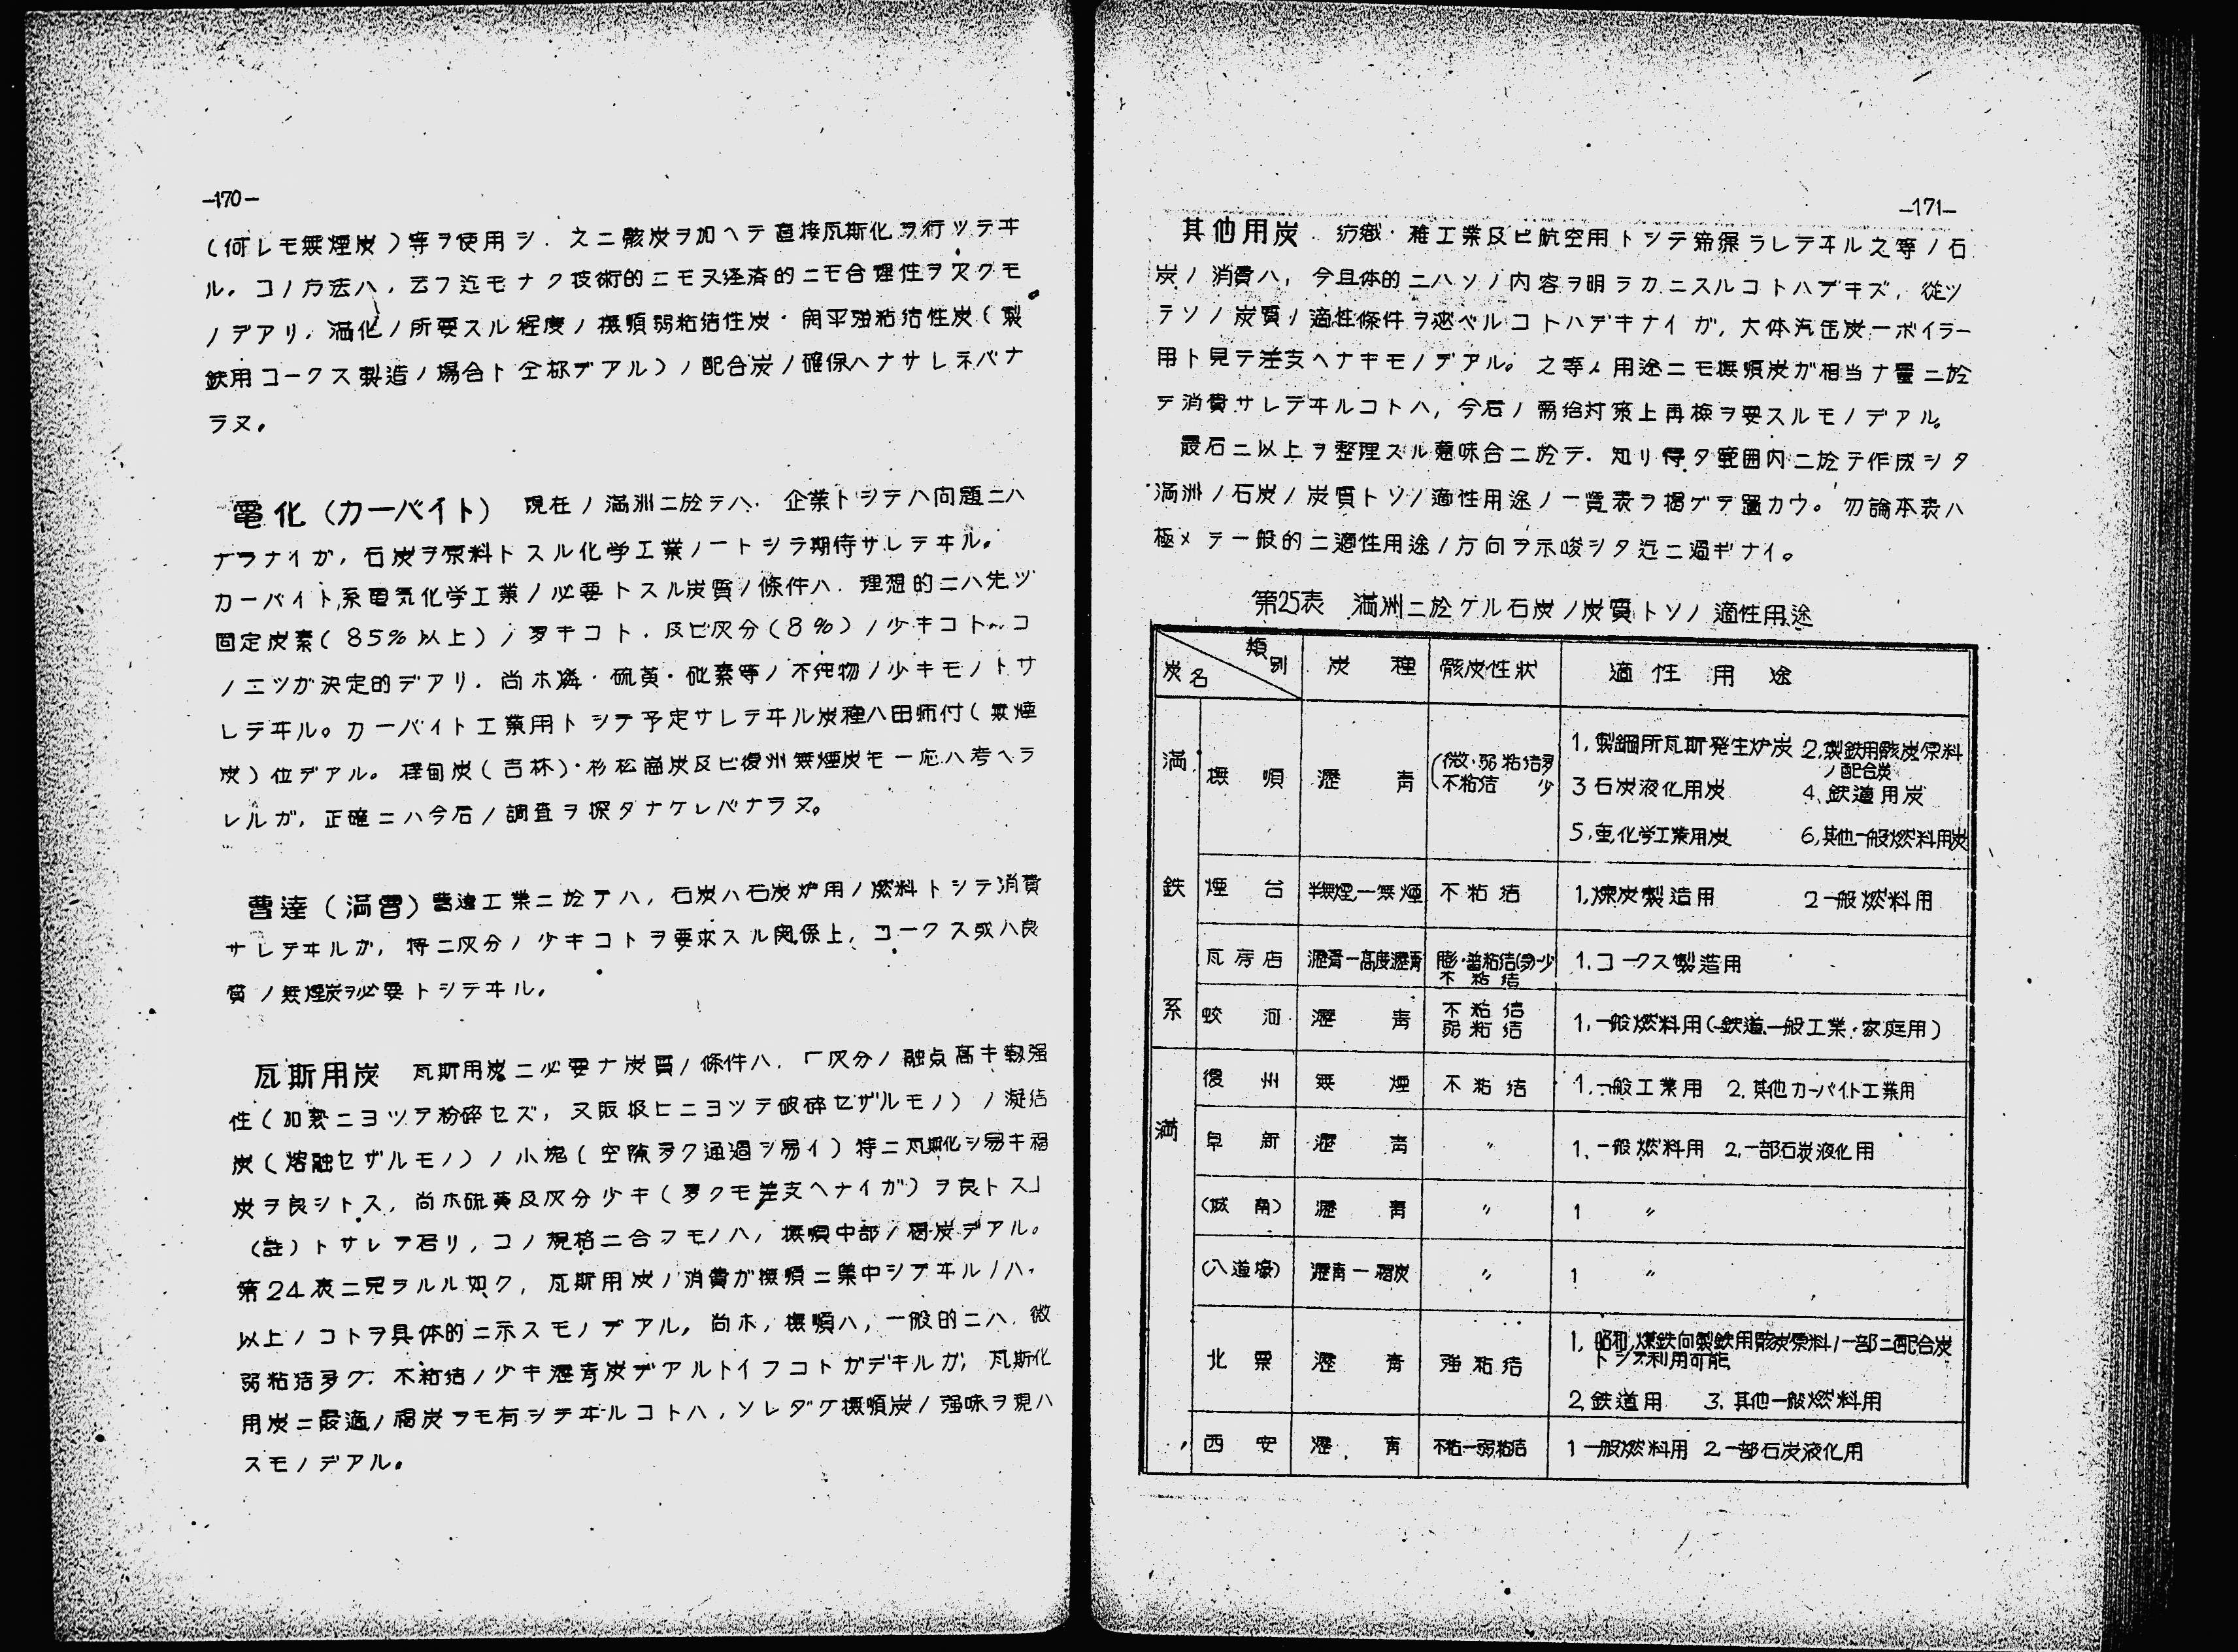 —170—
（何レモ無煙炭）等ヲ使用シ．之ニ骸炭ヲ加ヘテ直接瓦斯化ヲ行ツテヰ
ル．コノ方法ハ，云フ迄モナク技術的ニモ又経済的ニモ合理性ヲ欠クモ
ノデアリ，満化ノ所要スル程度ノ撫順弱粘結性炭・開平強粘結性炭（製
鉄用コークス製造ノ場合ト仝様デアル）ノ配合炭ノ確保ハナサレネバナ
ラヌ．
電化（カーバイト） 現在ノ満洲ニ於テハ．企業トシテハ問題ニハ
ナラナイガ，石炭ヲ原料トスル化学工業ノ一トシテ期待サレテヰル．
カーバイト系電気化学工業ノ必要トスル炭質ノ條件ハ．理想的ニハ先ヅ
固定炭素（85%以上）ノ多キコト．及ビ灰分（8%）ノ少キコト、コ
ノ二ツガ決定的デアリ．尚ホ燐・硫黄・砒素等ノ不純物ノ少キモノトサ
レテヰル。カーバイト工業用トシテ予定サレテヰル炭種ハ田師付（無煙
炭）位デアル。樺甸炭（吉林）・杉松崗炭及ビ復州無煙炭モ一応ハ考ヘラ
レルガ，正確ニハ今后ノ調査ヲ採タナケレバナラヌ。
曹達（満曹）曹達工業ニ於テハ，石炭ハ石炭炉用ノ燃料トシテ消費
サレテヰルガ，特ニ灰分ノ少キコトヲ要求スル関係上，コークス或ハ良
質ノ無煙炭ヲ必要トシテヰル．
瓦斯用炭 瓦斯用炭ニ必要ナ炭質ノ條件ハ．「灰分ノ融点高キ靱强
性（加熱ニヨツテ粉碎セズ，又阪扱ヒニヨツテ破碎セザルモノ）ノ凝結
炭（熔融セザルモノ）ノ小塊（空隙多ク通過シ易イ）特ニ瓦斯化シ易キ褐
炭ヲ良シトス，尚ホ硫黄及灰分少キ（多クモ差支ヘナイガ）ヲ良トス」
（註）トサレテ居リ，コノ規格ニ合フモノハ，撫順中部ノ褐炭デアル。
第24表ニ見ラルル如ク，瓦斯用炭ノ消費ガ撫順ニ集中シテヰルノハ．
以上ノコトヲ具体的ニ示スモノデアル．尚ホ，撫順ハ，一般的ニハ．微
弱粘結多ク．不粘結ノ少キ瀝青炭デアルトイフコトガデキルガ，瓦斯化
用炭ニ最適ノ褐炭ヲモ有シテヰルコトハ，ソレダケ撫順炭ノ强味ヲ現ハ
スモノデアル．
—171—
其他用炭．紡織・雑工業及ビ航空用トシテ締繰ラレテヰル之等ノ石
炭ノ消費ハ，今具体的ニハソノ内容ヲ明ラカニスルコトハデキズ，從ツ
テソノ炭質ノ適性條件ヲ述ベルコトハデキナイガ，大体汽缶炭ーボイラー
用ト見テ差支ヘナキモノデアル。之等ノ用途ニモ撫順炭ガ相当ナ量ニ於
テ消費サレテヰルコトハ，今后ノ需給対策上再検ヲ要スルモノデアル。
最后ニ以上ヲ整理スル意味合ニ於テ．知リ得タ範囲内ニ於テ作成シタ
満洲ノ石炭ノ炭質トソノ適性用途ノ一覧表ヲ掲ゲテ置カウ。勿論本表ハ
極メテ一般的ニ適性用途ノ方向ヲ示唆シタ迄ニ過ギナイ。
第25表 満洲ニ於ケル石炭ノ炭質トソノ適性用途
炭名 類別 炭種 骸炭性状 適性用途
満鉄系
撫順 瀝青 （微・弱粘結多 不粘結 少
1，製鋼所瓦斯発生炉炭 2，製鉄用骸炭原料ノ配合炭
3 石炭液化用炭 4，鉄道用炭
5．重化学工業用炭 6，其他一般燃料用炭
煙台 半無煙ー無煙 不粘結 1，煉炭製造用 2 一般燃料用
瓦房店 瀝青ー高度瀝青 膨・普粘結（多ー少 不粘結 1．コークス製造用
蛟河 瀝青 不粘結 弱粘結 1，一般燃料用（鉄道、一般工業・家庭用）
満
復州 無煙 不粘結 1．一般工業用 2．其他カーバイト工業用
阜新 瀝青 〃 1．一般燃料用 2．一部石炭液化用
（城南） 瀝青 〃 1 〃
（八道壕） 瀝青ー褐炭 〃 1 〃
北票 瀝青 強粘結 1，昭和，煤鉄向製鉄用骸炭原料ノ一部ニ配合炭
トシテ利用可能
2，鉄道用 3．其他一般燃料用
西安 瀝青 不粘ー弱粘結 1 一般燃料用 2 一部石炭液化用